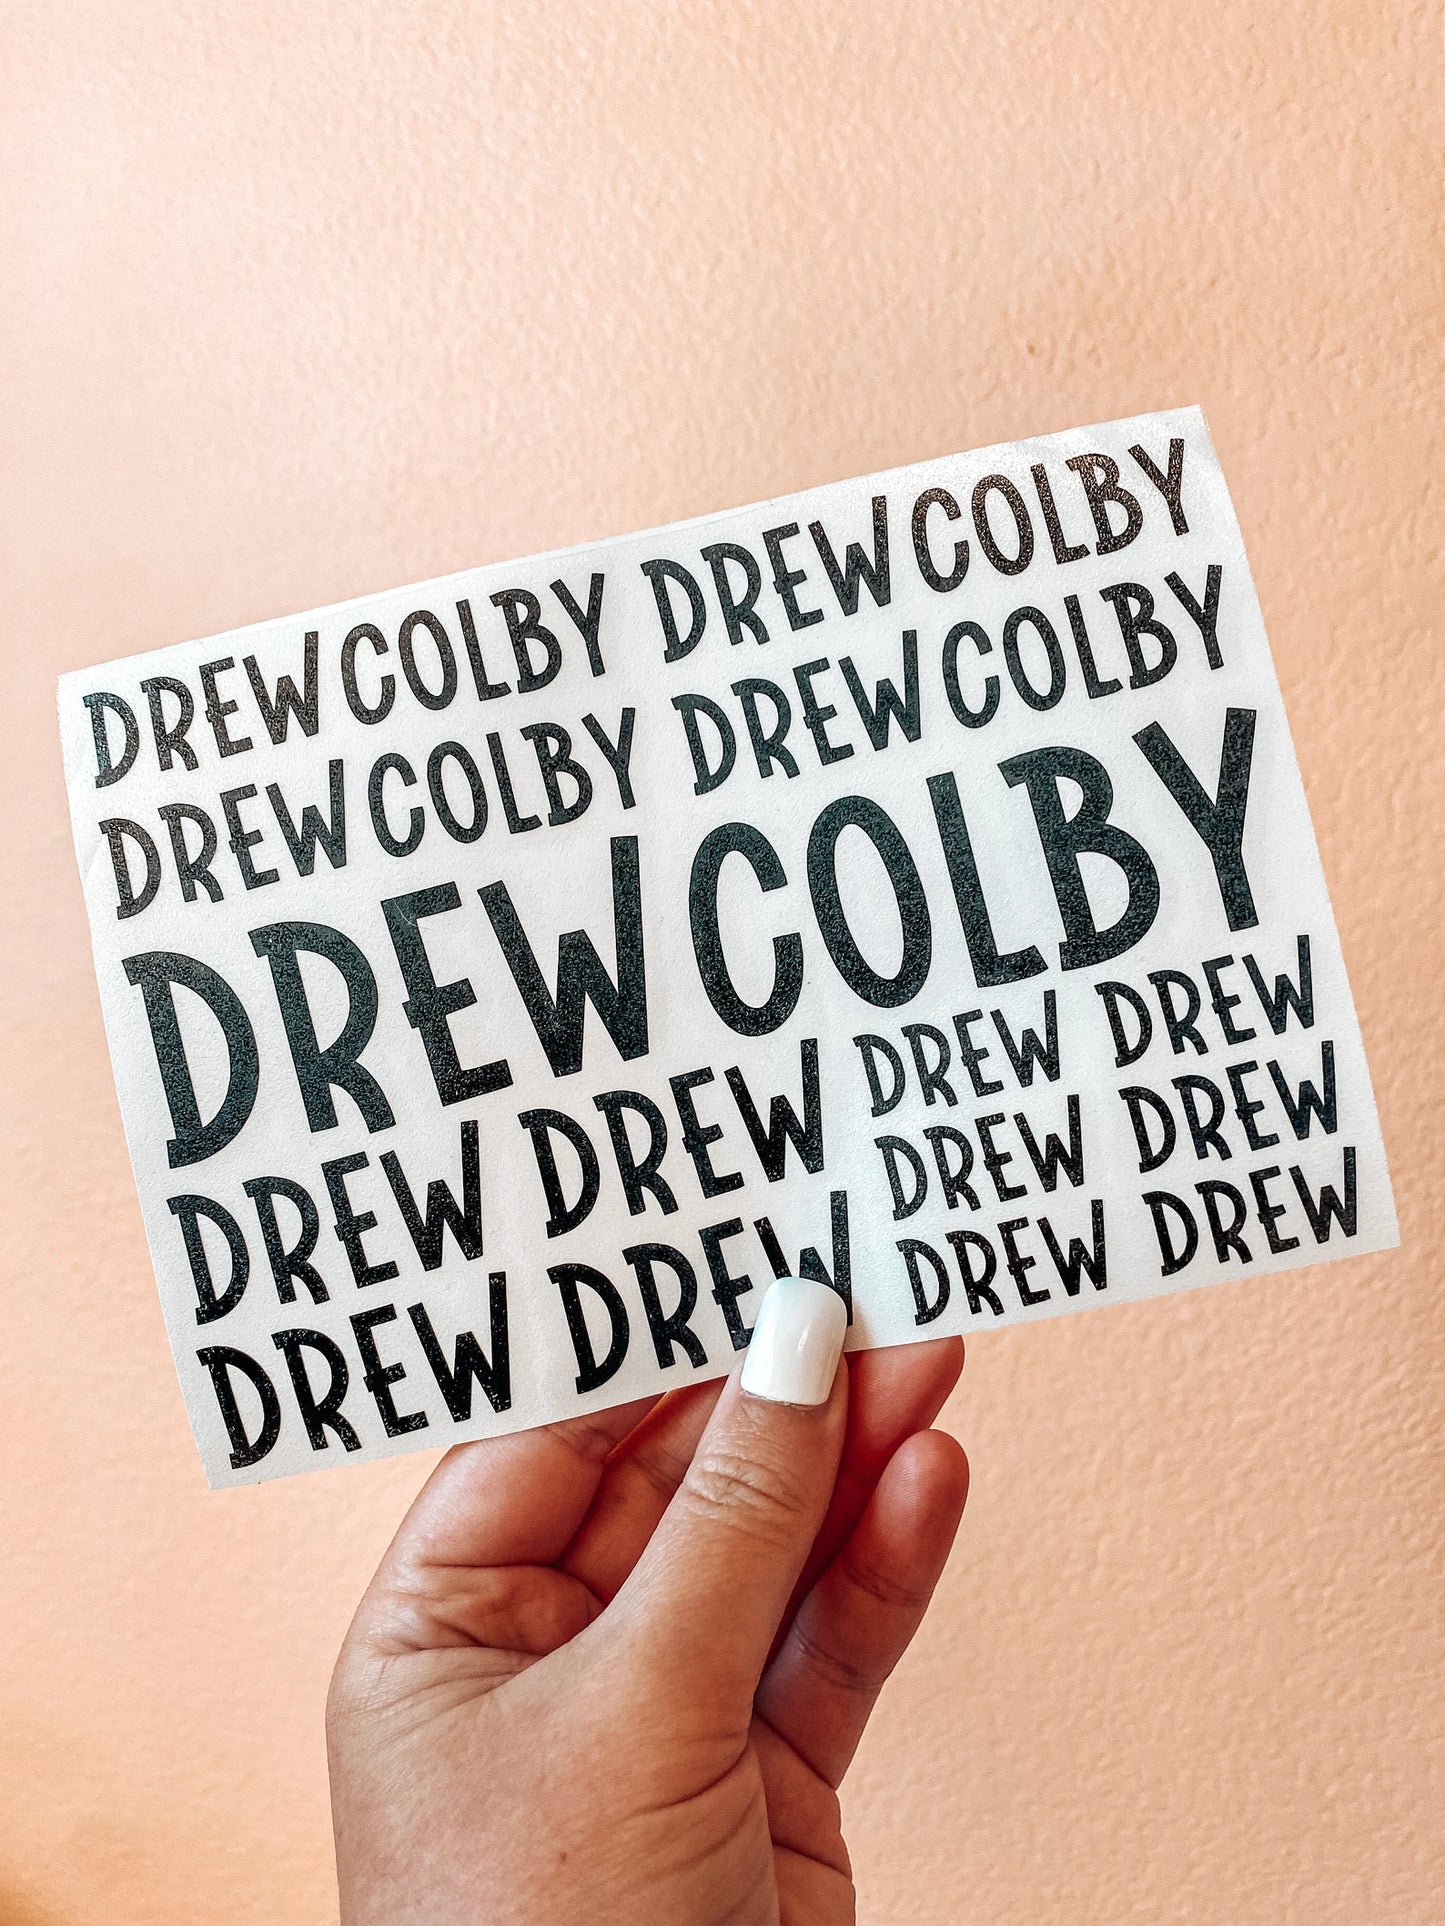 DREW COLBY DREW COLBY
DREW COLBY DREW COLBY
DREW COLBY
DREW DREW
DREW DREW
DREW DREW
DREW DREW
DREW DREW